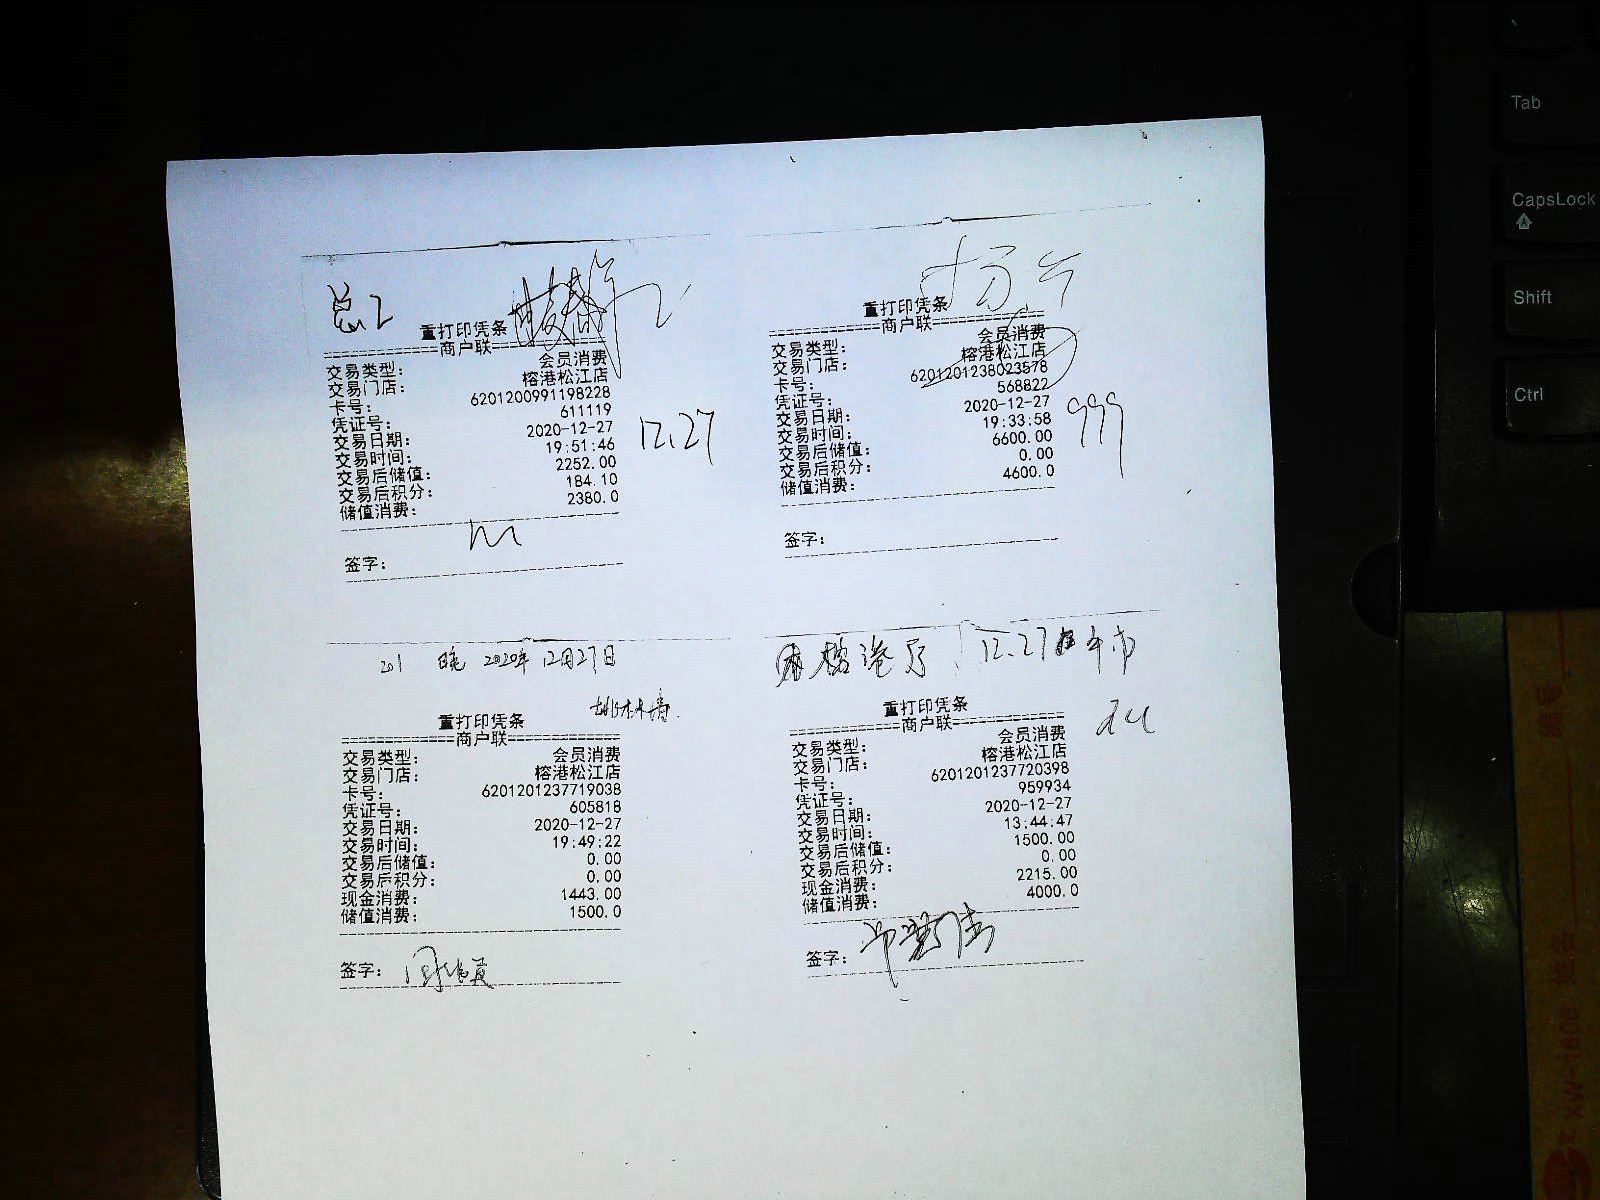 重打印凭条
商户联
交易类型: 会员消费
交易门店: 榕港松江店
卡号: 6201200991198228
凭证号: 611119
交易日期: 2020-12-27
交易时间: 19:51:46
交易后储值: 2252.00
交易后积分: 184.10
储值消费: 2380.0
12.27
签字:
重打印凭条
商户联
交易类型: 会员消费
交易门店: 榕港松江店
卡号: 6201201238023578
凭证号: 568822
交易日期: 2020-12-27
交易时间: 19:33:58
交易后储值: 6600.00
交易后积分: 0.00
储值消费: 4600.0
999
签字:
201 晚 2020年12月27日
重打印凭条
商户联
交易类型: 会员消费
交易门店: 榕港松江店
卡号: 6201201237719038
凭证号: 605818
交易日期: 2020-12-27
交易时间: 19:49:22
交易后储值: 0.00
交易后积分: 0.00
现金消费: 1443.00
储值消费: 1500.0
签字:
12.27 午市
重打印凭条
商户联
交易类型: 会员消费
交易门店: 榕港松江店
卡号: 6201201237720398
凭证号: 959934
交易日期: 2020-12-27
交易时间: 13:44:47
交易后储值: 1500.00
交易后积分: 0.00
现金消费: 2215.00
储值消费: 4000.0
签字:
Tab
CapsLock
Shift
Ctrl